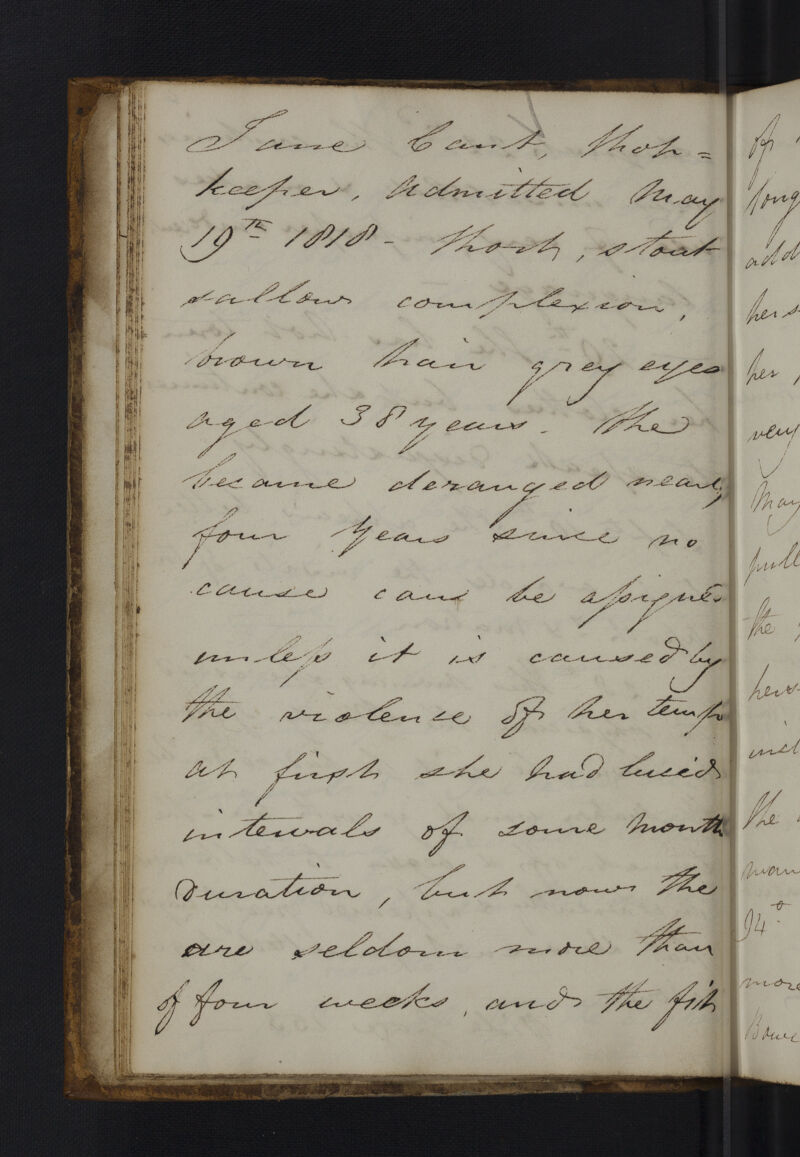 Jane Cant, Shop=
keeper, Admitted May
19th 1818 - Short, stout
sallow complexion,
brown hair grey eyes
aged 38 years. She
became deranged nearly
four Years since no
cause can be assigned
unless it is caused by
the violence of her temp
at first she had lucid
intervals of some month
Duration, but now the
are seldom more than
of four weeks, and the fit
of
long
add
her s
her
very
May
pull
the
hers
incl
the
man
94°
more
Bowe